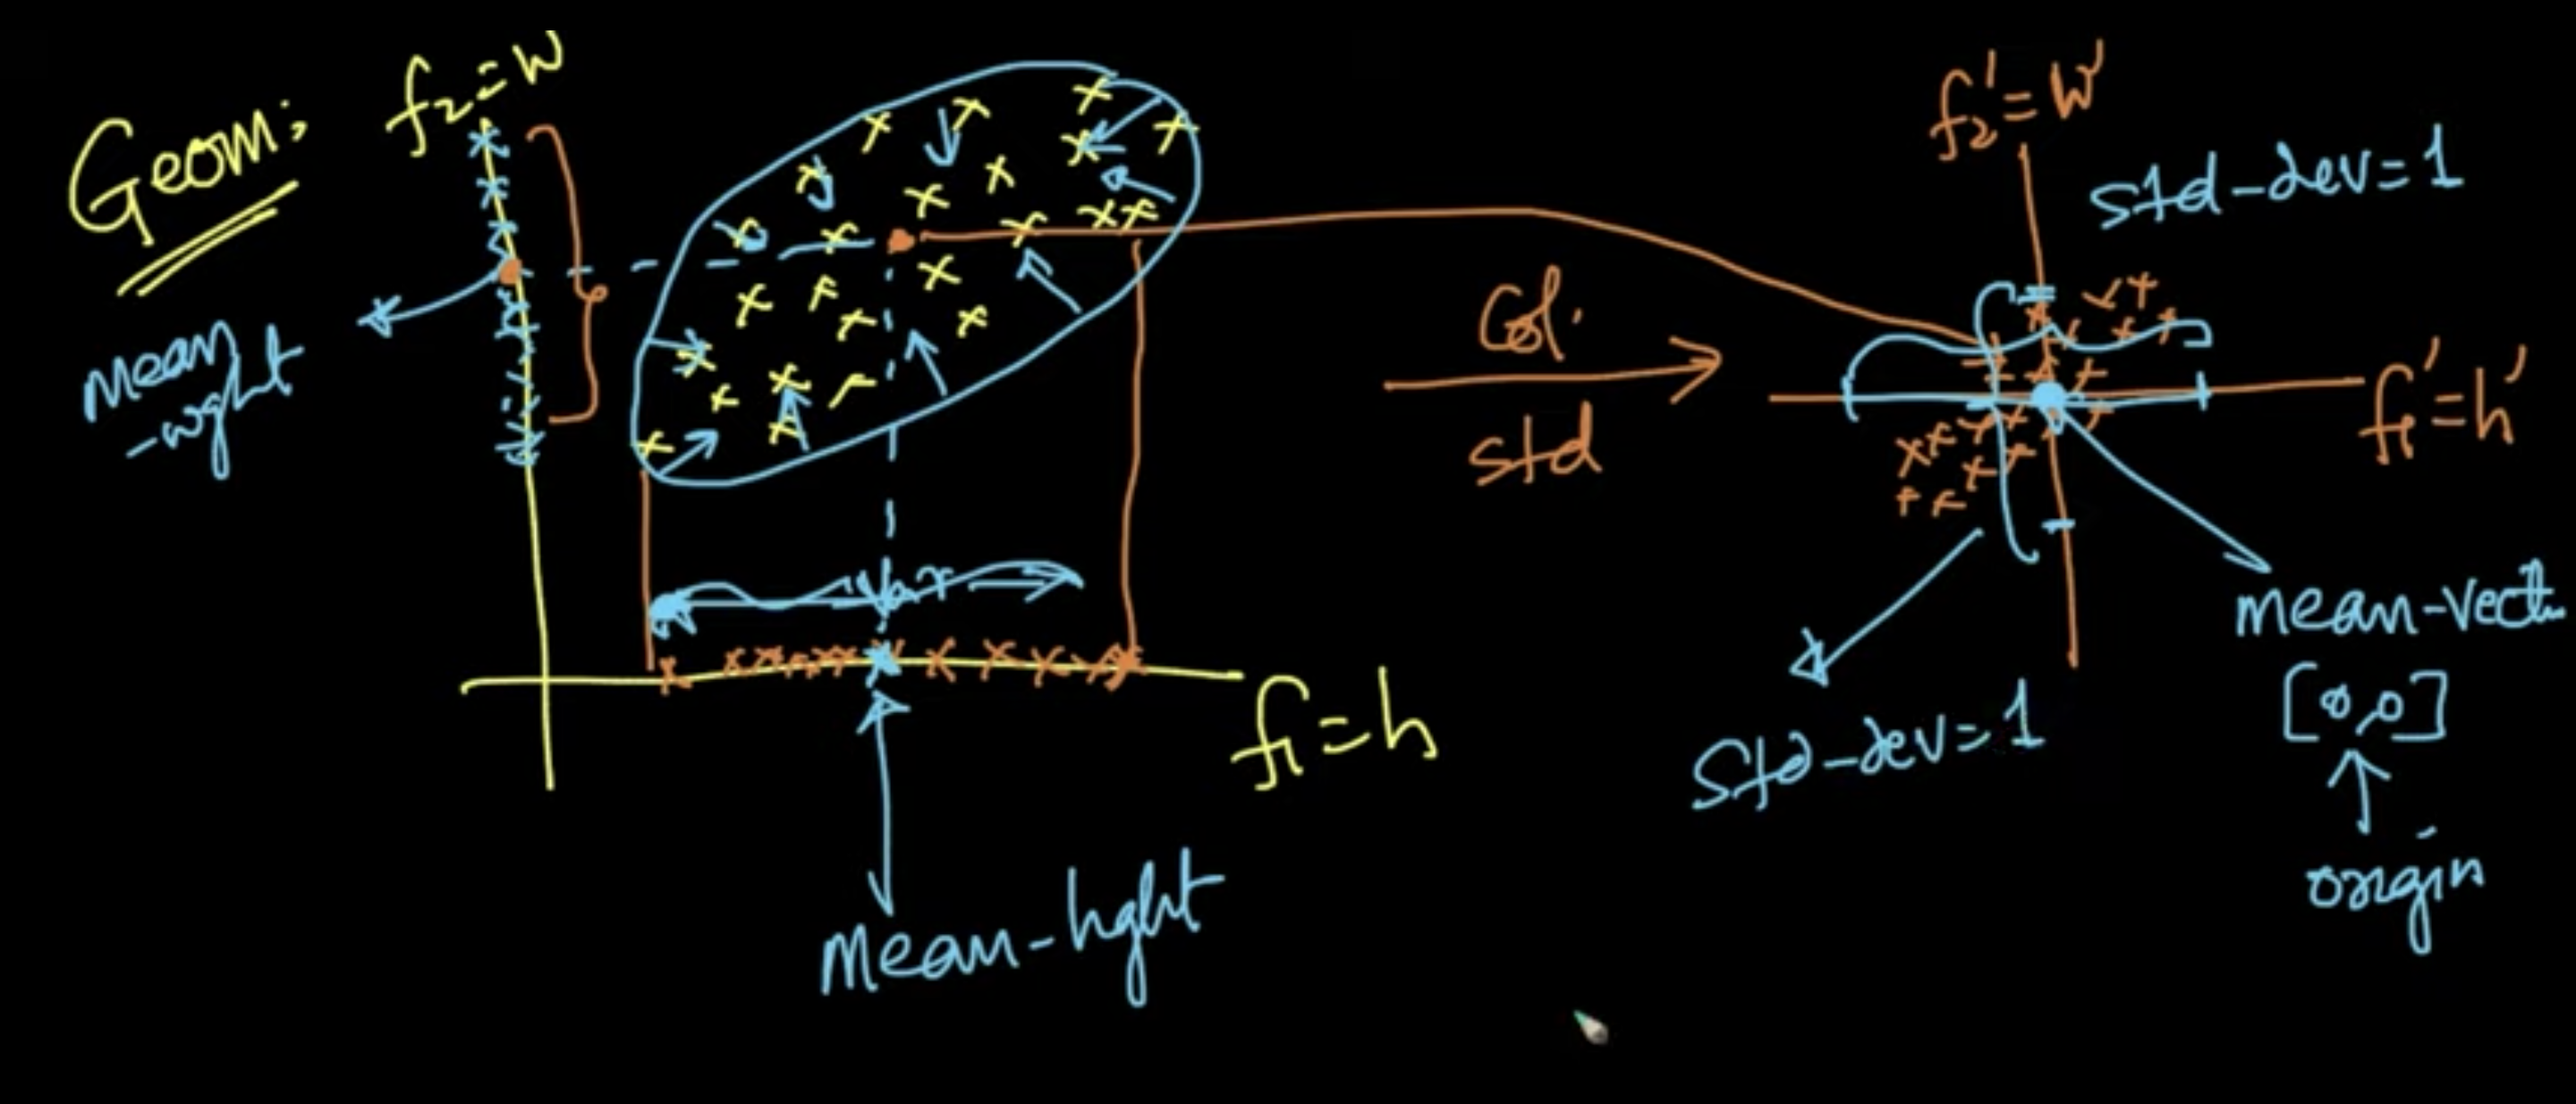 Geom:
f₂=w
mean
-wght
Var
f₁=h
Mean-hght
Col.
std
f₂'=w'
std-dev=1
f₁'=h'
std-dev=1
mean-vect
[0,0]
origin